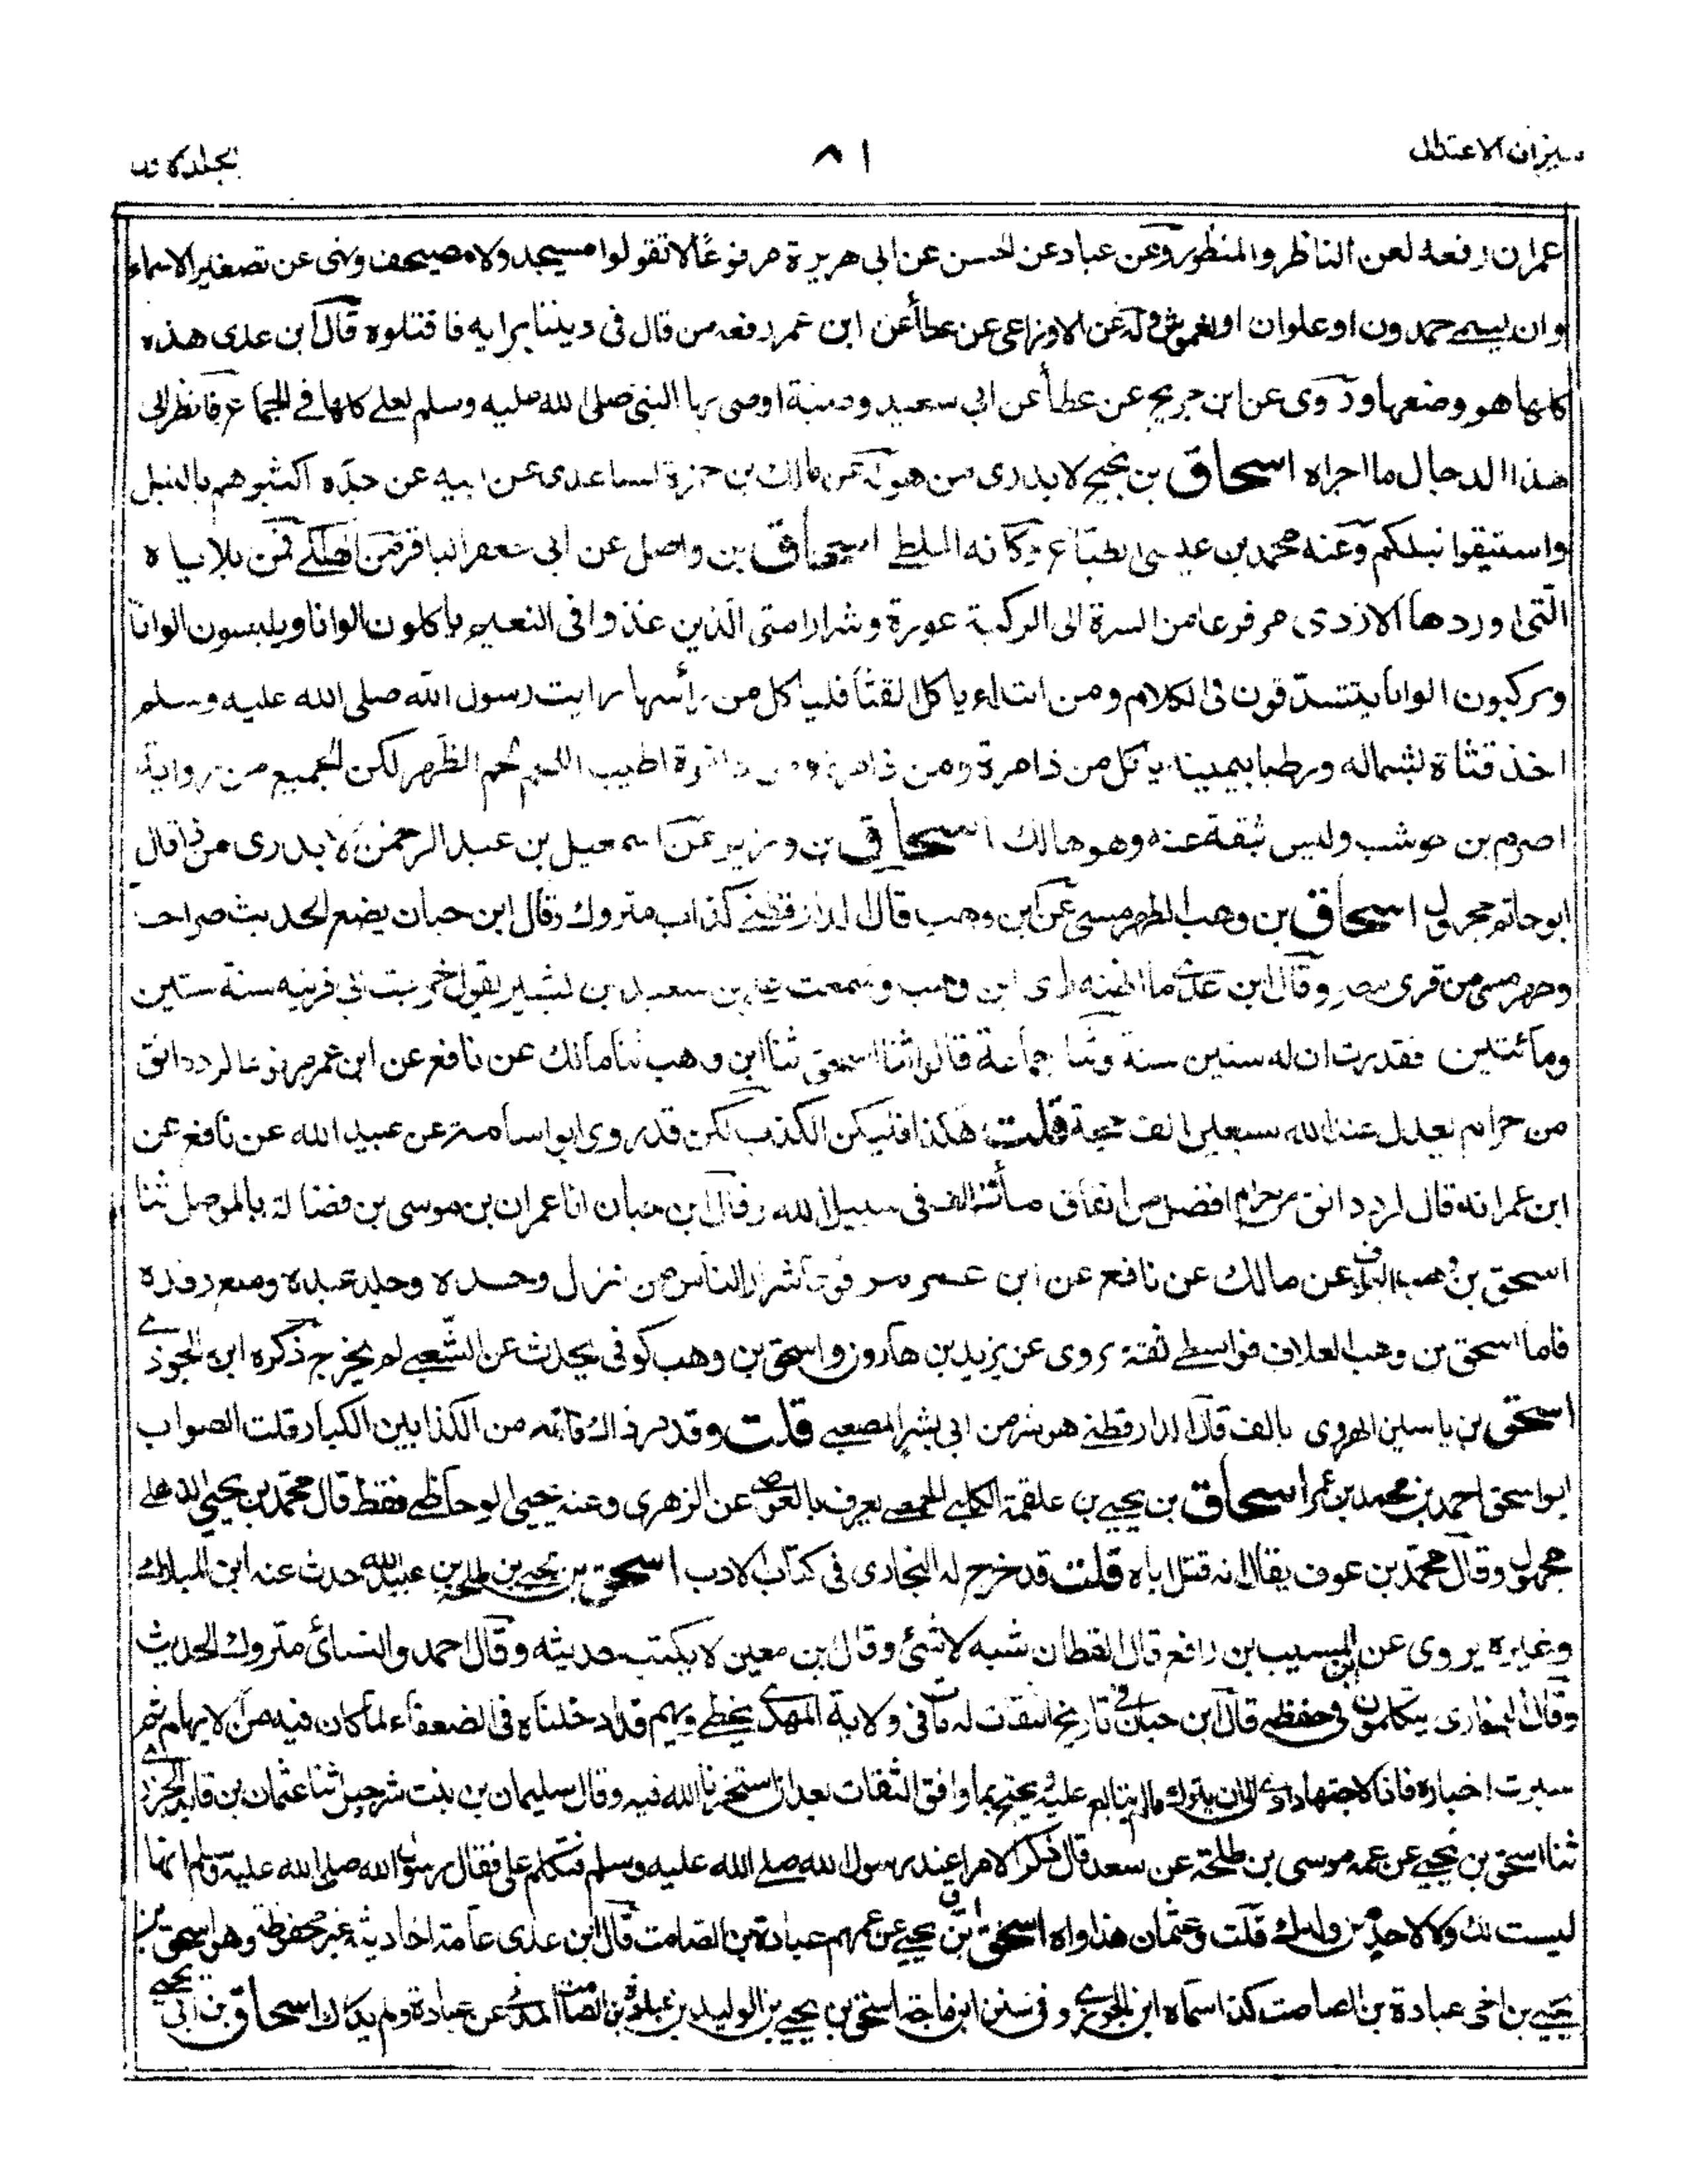 ميزان الاعتدال
٨١
عمران رفعه لعن الناظر والمنظور وعن عباد عن الحسن عن ابي هريرة مرفوعًا لا تقولوا مسيجد ولا مصيحف ونهى عن تصغير الاسماء
وان يسمے حمدون او علوان او يغموش وله عن الاوزاعي عن عطاء عن ابن عمر رفعه من قال فى ديننا برايه فاقتلوه قال ابن عدى هذه
كلها هو وضعها وروى عن ابن جريج عن عطاء عن ابي سعيد وصية اوصى بها النبي صلى الله عليه وسلم لعلے كلها فے الجماع فانظر الى
هذا الدجال ما اجراه اسحاق بن نجيح لا يدرى من هو له عن مالك بن حمزة الساعدى عن ابيه عن جده اكثبوهم بالنبل
واستبقوا نبلكم وعنه محمد بن عيسى الطباع وكانه الملطے اسحاق بن واصل عن ابى جعفر الباقر من الهلكے فمن بلاياه
التى اوردها الازدى مرفوعا من السرة الى الركبة عورة وشرار امتى الذين غذوا فى النعيم ياكلون الوانا ويلبسون الوانا
ويركبون الوانا يتشدقون فى الكلام ومن اتناء ياكل القثاء فلياكل من رأسها رايت رسول الله صلى الله عليه وسلم
اخذ قثاة بشماله ورطبا بيمينه ياكل من ذا مرة ومن ذا مرة اطيب اللحم لحم الظهر لكن الجميع من رواية
اصرم بن حوشب وليس بثقة عنه وهو هالك اسحاق بن وزير عن اسمعيل بن عبد الرحمن لا يدرى من ذا قال
ابو حاتم مجهول اسحاق بن وهب الطهرمسى عن ابن وهب قال الدارقطنے كذاب متروك وقال ابن حبان يضع الحديث صراحا
وطهرمس من قرى مصر وقال ابن عدے ما اظنه راى ابن وهب وسمعت على بن سعيد بن بشير يقول خرجت الى قريته سنة ستين
ومائتين فقدرت ان له ستين سنة وثنا جماعة قالوا ثنا اسحق ثنا ابن وهب ثنا مالك عن نافع عن ابن عمر مرفوعا لرد دانق
من حرام يعدل عند الله سبعين الف حجة قلت هكذا فليكن الكذب لكن قد روى ابو اسامة عن عبيد الله عن نافع عن
ابن عمر انه قال لرد دانق من حرام افضل من انفاق مائة الف فى سبيل الله وقال ابن حبان انا عمران بن موسى بن فضالة بالموصل ثنا
اسحق بن وهب عن مالك عن نافع عن ابن عمر مرفوعا شرار الناس من نزل وحده وجلد عبده ومنع رفده
فاما اسحق بن وهب العلاف فواسطے ثقة يروى عن يزيد بن هارون واسحق بن وهب كوفى يحدث عن الشعبے لم يخرج ذكره ابن الجوزے
اسحق بن ياسين الهروى بالف قال الدارقطنے هو شر من ابى بشر المصعبے قلت وقد مر ذاك فانه من الكذابين الكبار قلت الصواب
ابو اسحق احمد بن محمد بن اسحاق بن يحيے بن علقمة الكلبے الحمصے يعرف بالعوصے عن الزهرى وعنه يحيى الوحاظے فقط قال محمد بن يحيى الذهلے
مجهول وقال محمد بن عوف يقال انه قتل اباه قلت قد خرج له البخارى فى كتاب الادب اسحق بن يحيے بن طلحة بن عبيد الله حدث عنه ابن المبارك
وغيره يروى عن المسيب بن رافع قال القطان شبه لا شئ وقال ابن معين لا يكتب حديثه وقال احمد والنسائى متروك الحديث
وقال البخارى يتكلمون فى حفظه قال ابن حبان فى تاريخ الثقات له مات فى ولاية المهدے يخطے ويهم قد ادخلناه فى الضعفاء لما كان فيه من الايهام ثم
سبرت اخباره فاذا الاجتهاد ادے الى ان يترك ما لم يتابع عليه ويحتج بما وافق الثقات بعد ان استخرنا الله فيه وقال سليمان بن بنت شرحبيل ثنا عثمان بن فايد
ثنا اسحق بن يحيے عن عمه موسى بن طلحة عن سعد قال ذكر الامراء عند رسول الله صلے الله عليه وسلم فتكلم على فقال رسول الله صلى الله عليه وسلم انها
ليست لك ولا لاحد من ولدك قلت وعثمان هذا واه اسحق بن يحيے عن عمهم عبادة بن الصامت قال ابن عدى عامة احاديثه غير محفوظة وهو اسحق بن
يحيے بن اخى عبادة بن الصامت كذا سماه ابن الجوزے وفى سنن ابن ماجة اسحق بن يحيے بن الوليد بن عبادة بن الصامت المدنى عن عبادة ولم يدركه اسحاق بن ابى يحيے